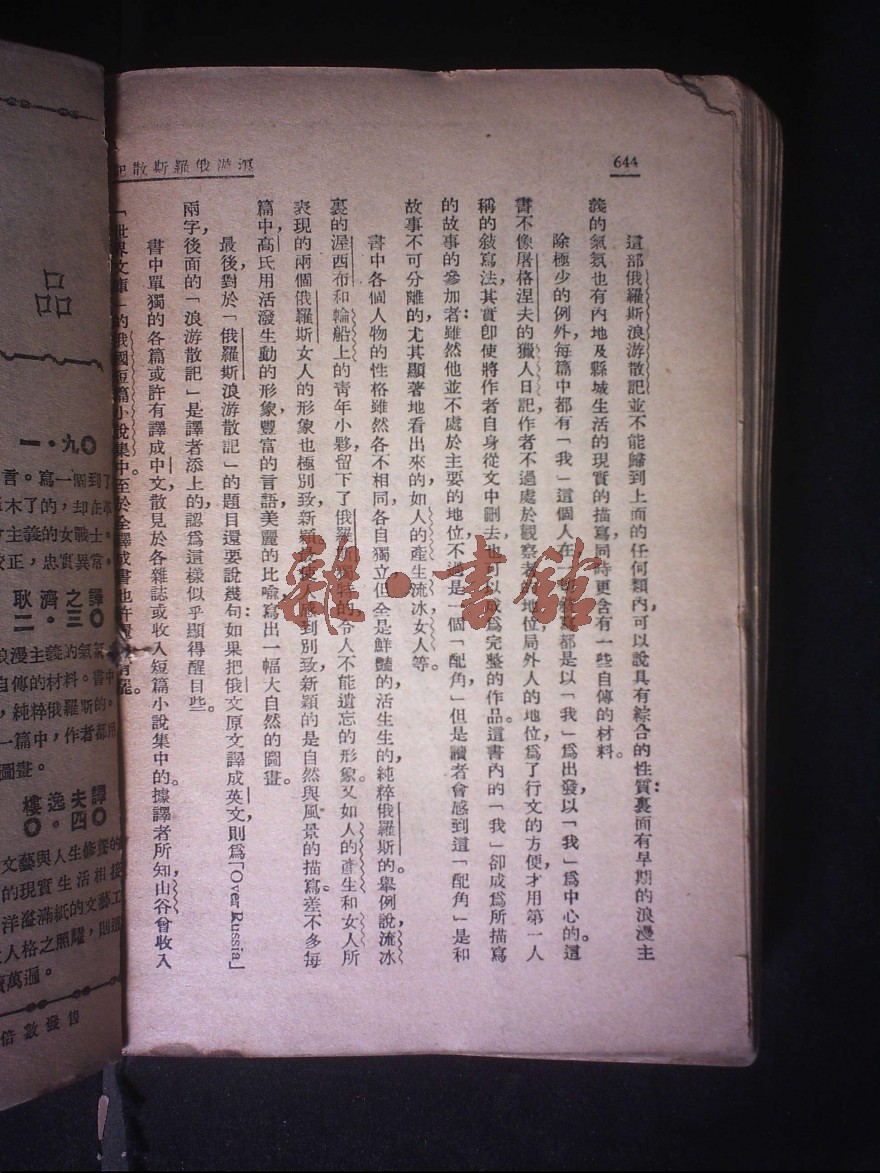 644
浪游俄羅斯散記
這部俄羅斯浪游散記並不能歸到上面的任何類內,可以說具有綜合的性質:裏面有早期的浪漫主
義的氣氛也有內地及縣城生活的現實的描寫,同時更含有一些自傳的材料。
除極少的例外,每篇中都有「我」這個人在,一切都是以「我」爲出發,以「我」爲中心的。這
書不像屠格涅夫的獵人日記,作者不過處於觀察者的地位,局外人的地位,爲了行文的方便,才用第一人
稱的敍寫法,其實卽使將作者自身從文中刪去,也可以成爲完整的作品。這書內的「我」卻成爲所描寫
的故事的參加者:雖然他並不處於主要的地位,不過是一個「配角」,但是讀者會感到這「配角」是和
故事不可分離的,尤其顯著地看出來的,如人的產生,流冰,女人等。
書中各個人物的性格雖然各不相同,各自獨立,但全是鮮豔的,活生生的,純粹俄羅斯的。舉例說,流冰
裏的渥西布和輪船上的青年小夥,留下了俄羅斯獨特的,令人不能遺忘的形象。又如人的產生和女人所
表現的兩個俄羅斯女人的形象也極別致,新穎。最使人感到別致,新穎的是自然與風景的描寫。差不多每
篇中,高氏用活潑生動的形象,豐富的言語,美麗的比喩,寫出一幅大自然的圖畫。
最後,對於「俄羅斯浪游散記」的題目還要說幾句:如果把俄文原文譯成英文,則爲「Over Russia」
兩字,後面的「浪游散記」是譯者添上的,認爲這樣似乎顯得醒目些。
書中單獨的各篇或許有譯成中文,散見於各雜誌或收入短篇小說集中的。據譯者所知,山谷曾收入
「世界文庫」的俄國短篇小說集中。至於全譯成書也許還有罷。
雜·書館
品
一·九〇
言。寫一個到了
校正,忠實異常,
耿濟之譯
二·三〇
浪漫主義的氣氛
自傳的材料。書中
,純粹俄羅斯的。
一篇中,作者都用
圖畫。
樓逸夫譯
〇·四〇
文藝與人生修養的
的現實生活相接
洋溢滿紙的文藝工
大人格之照耀,則這
讀萬遍。
倍數發售